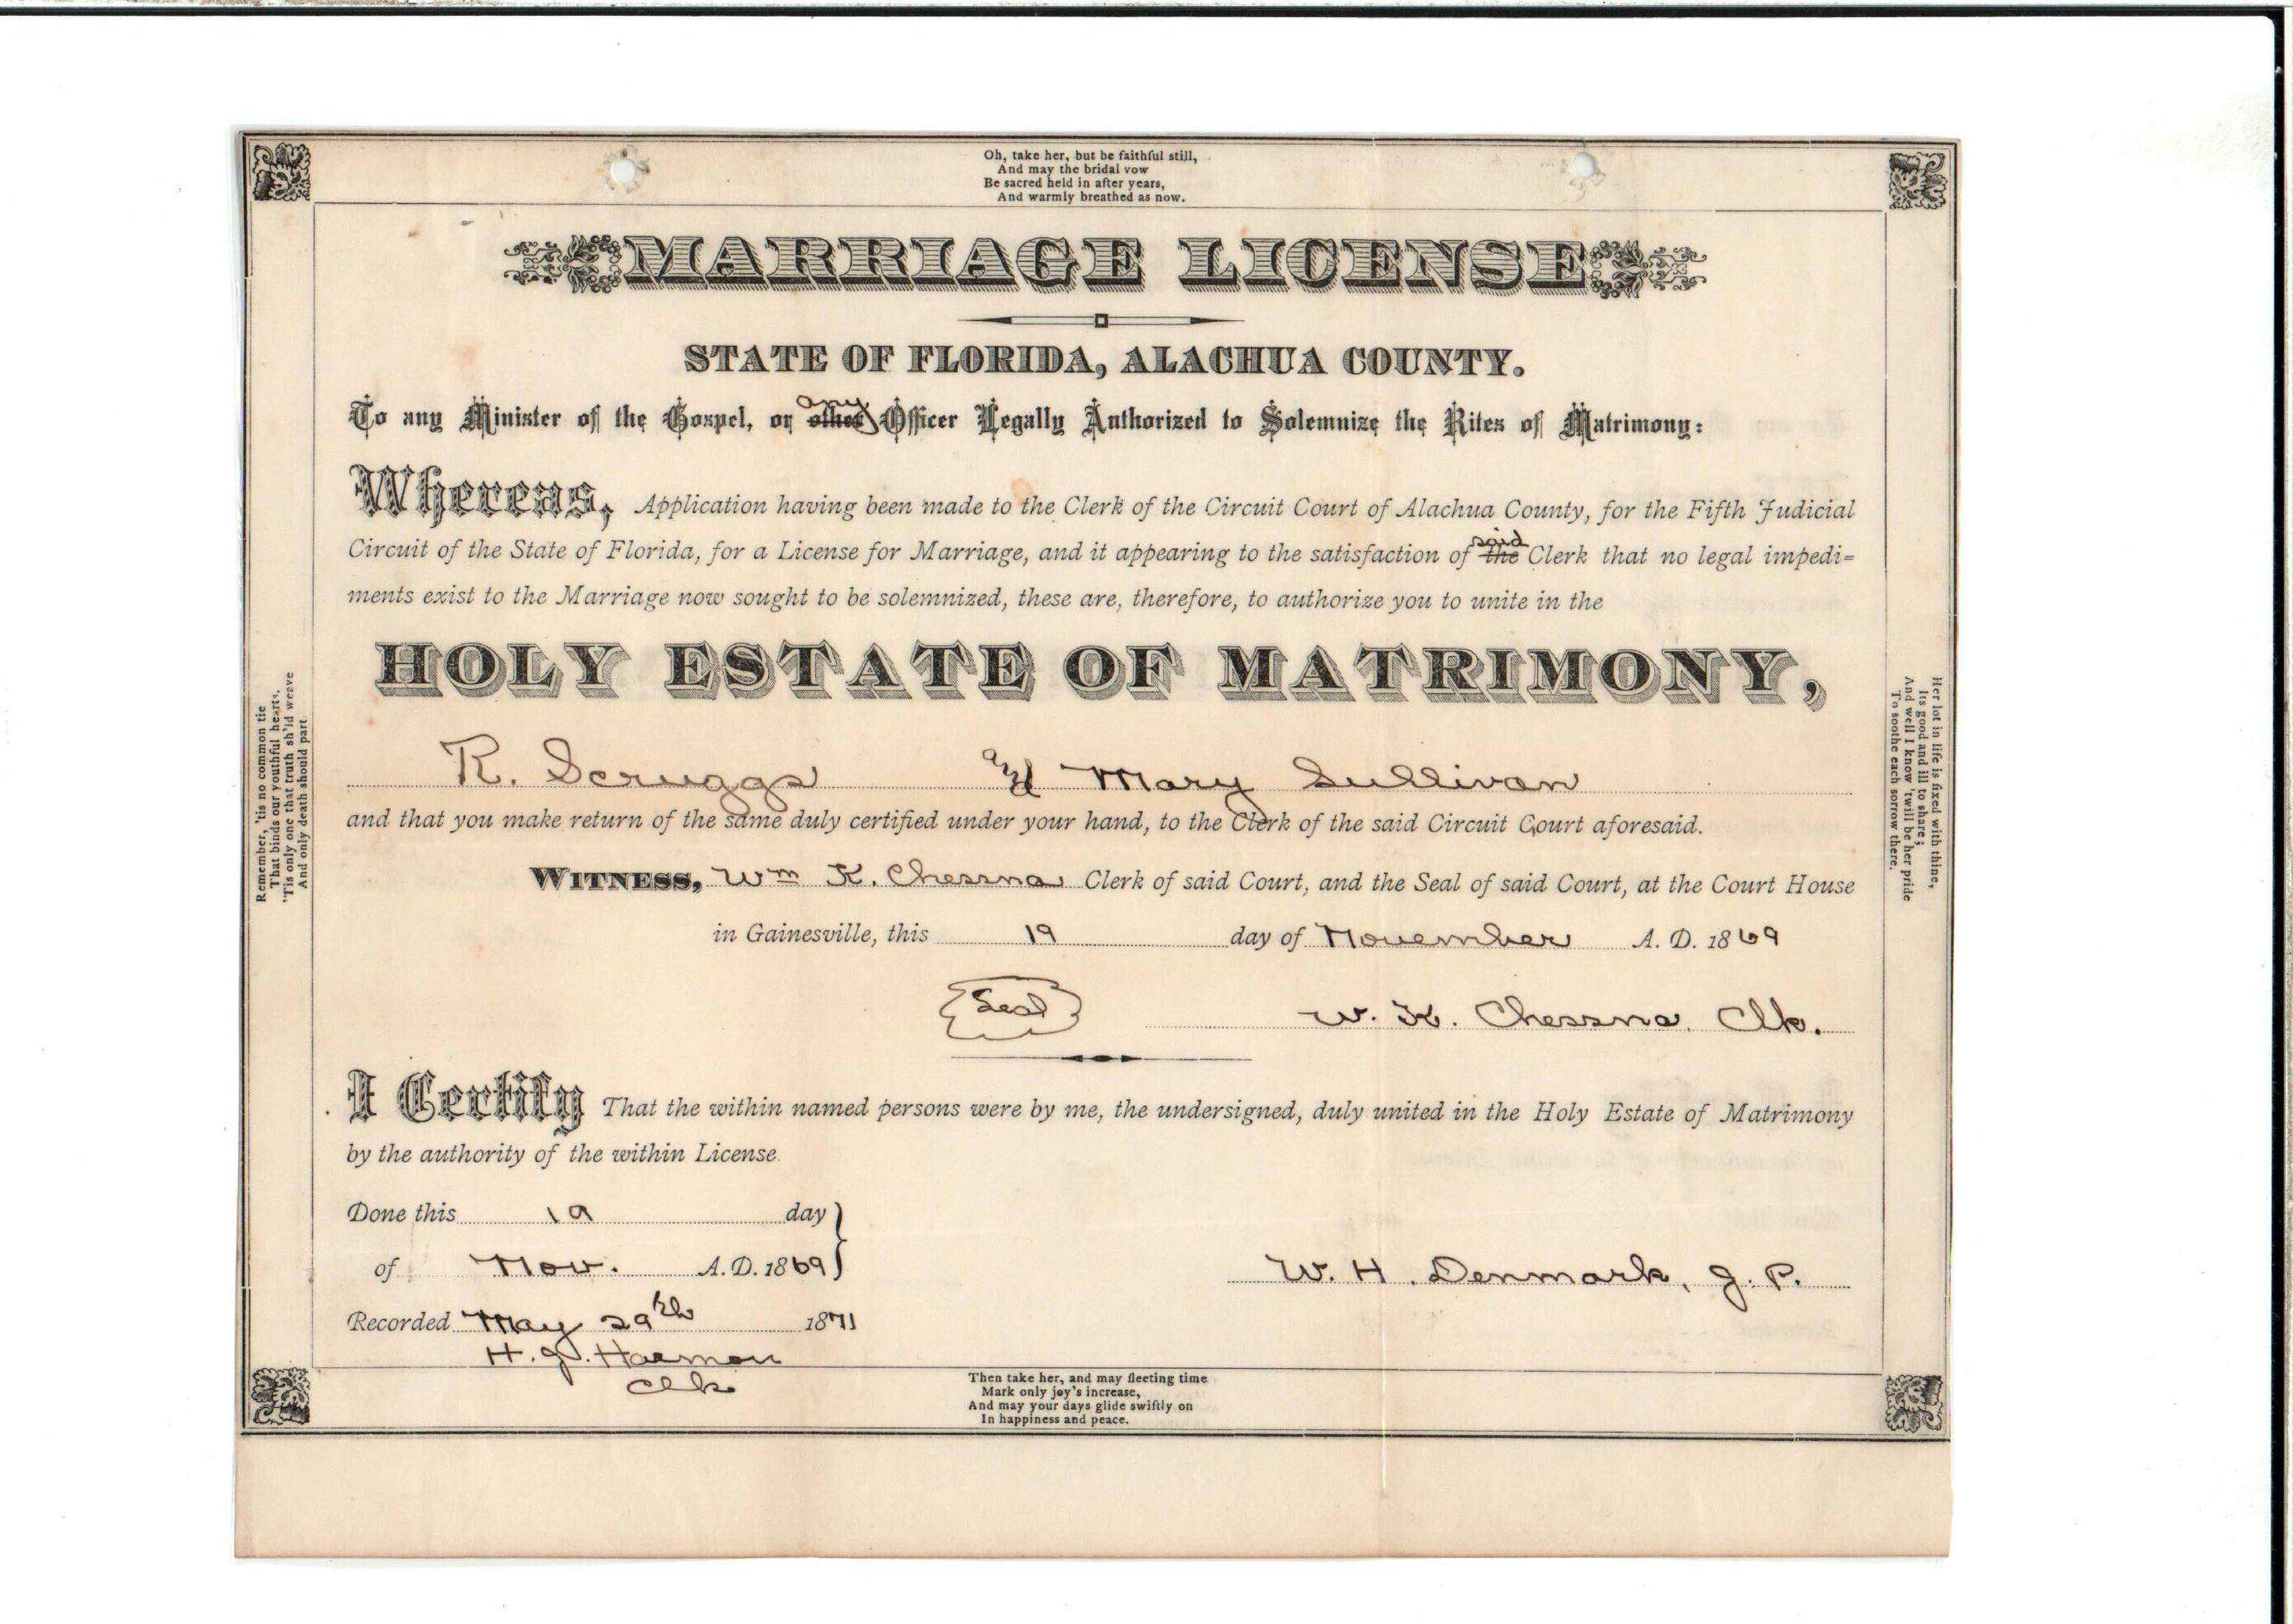 Oh, take her, but be faithful still,
And may the bridal vow
Be sacred held in after years,
And warmly breathed as now.
MARRIAGE LICENSE
STATE OF FLORIDA, ALACHUA COUNTY.
any
To any Minister of the Gospel, or other Officer Legally Authorized to Solemnize the Rites of Matrimony:
Whereas, Application having been made to the Clerk of the Circuit Court of Alachua County, for the Fifth Judicial
said
Circuit of the State of Florida, for a License for Marriage, and it appearing to the satisfaction of the Clerk that no legal impedi=
ments exist to the Marriage now sought to be solemnized, these are, therefore, to authorize you to unite in the
HOLY ESTATE OF MATRIMONY,
R. Scruggs and Mary Sullivan
and that you make return of the same duly certified under your hand, to the Clerk of the said Circuit Court aforesaid.
WITNESS, Wm K. Chessna Clerk of said Court, and the Seal of said Court, at the Court House
in Gainesville, this 19 day of November A. D. 1869
Seal
W. K. Chessna, Clk.
I Certify That the within named persons were by me, the undersigned, duly united in the Holy Estate of Matrimony
by the authority of the within License.
Done this 19 day
of Nov. A. D. 1869
W. H. Denmark, J. P.
Recorded May 29th 1871
H. J. Harmon
Clk
Then take her, and may fleeting time
Mark only joy's increase,
And may your days glide swiftly on
In happiness and peace.
Remember, 'tis no common tie
That binds our youthful hearts,
'Tis only one that truth sh'ld weave
And only death should part
Her lot in life is fixed with thine,
Its good and ill to share;
And well I know 'twill be her pride
To soothe each sorrow there.